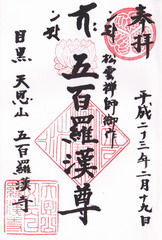 奉拝
平成二十三年二月十九日
松雲禅師御作
五百羅漢尊
目黒 天恩山 五百羅漢寺